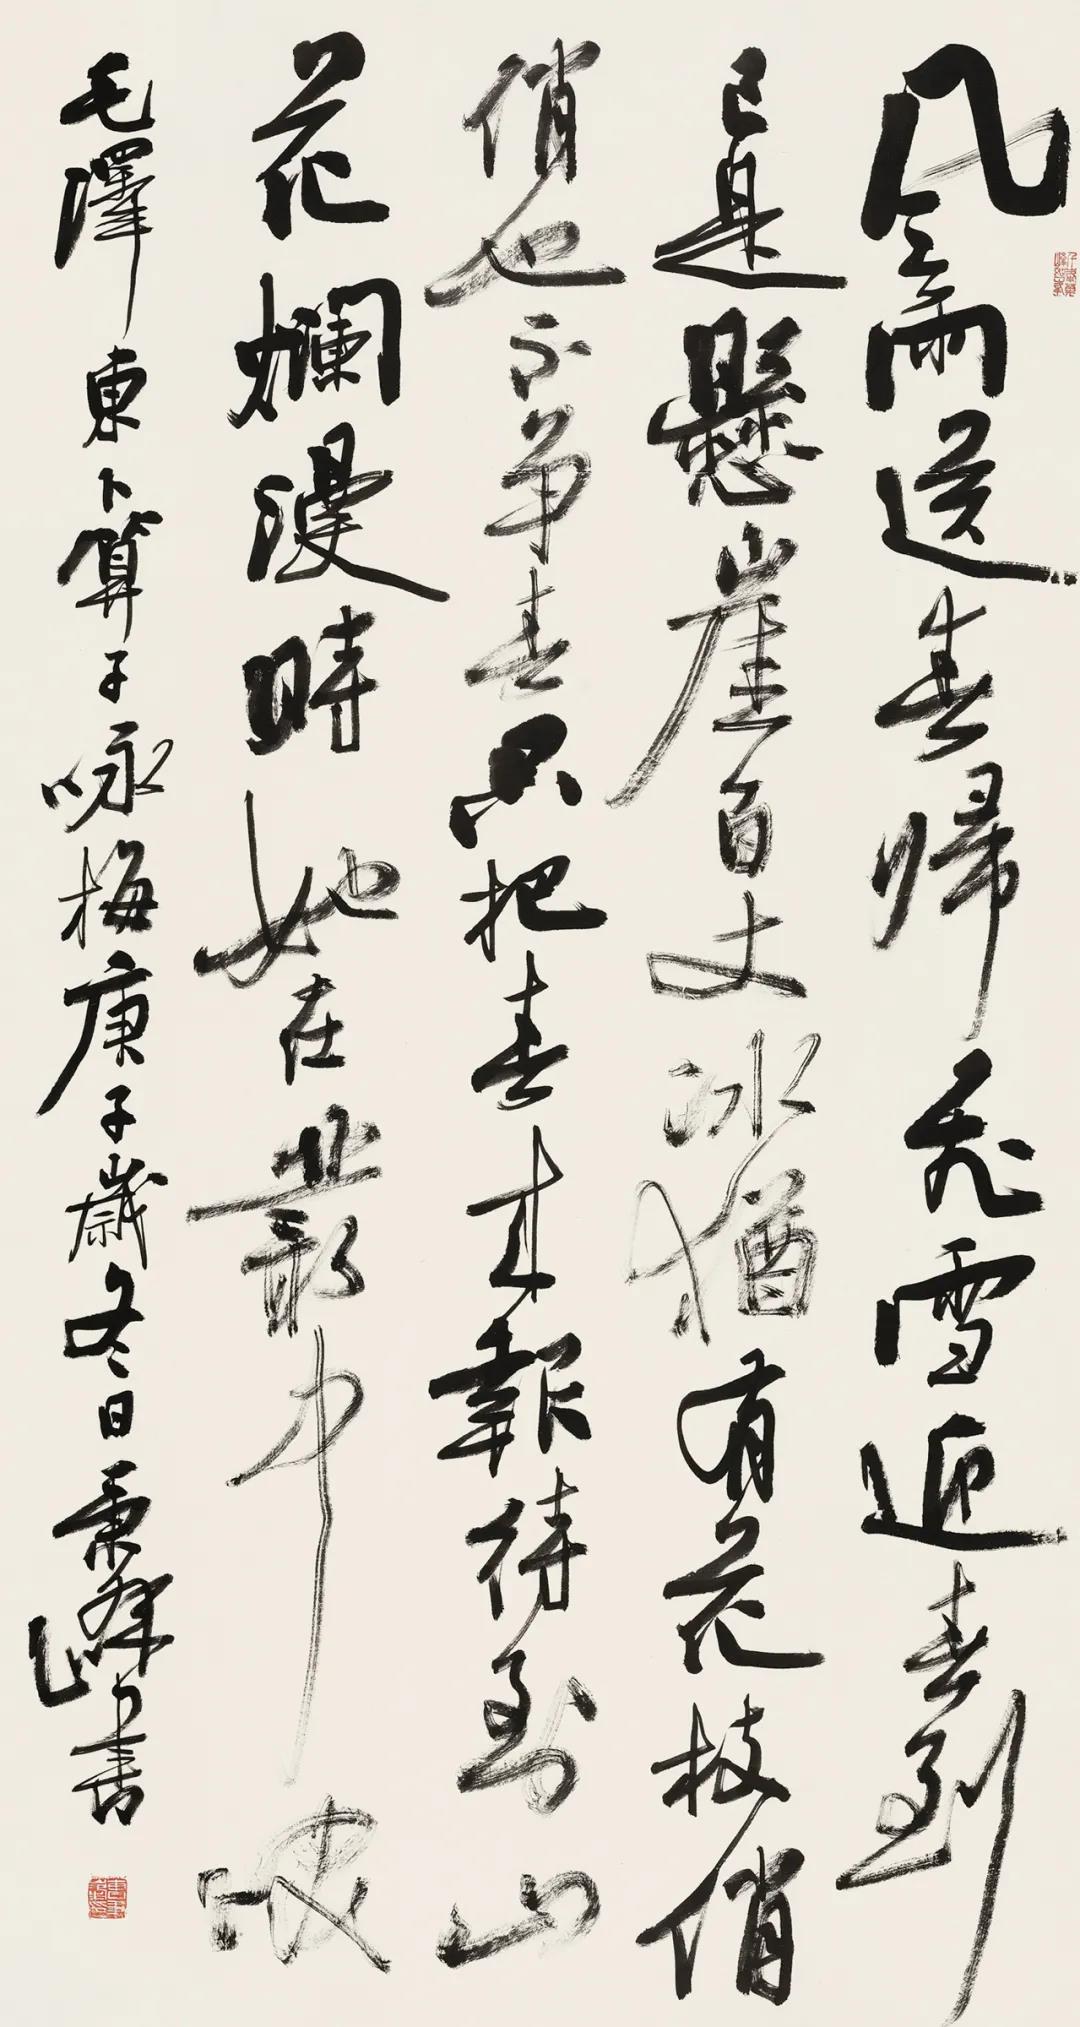 風雨送春歸飛雪迎春到
已是懸崖百丈冰猶有花枝俏
俏也不争春只把春来報待到山
花爛漫時她在叢中咲
毛澤東卜算子咏梅庚子歲冬日秉峰書